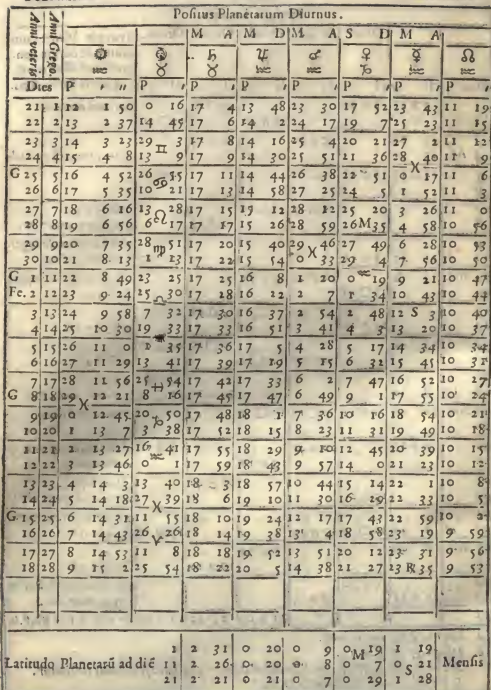 Positus Planetarum Diurnus.
Anni veteris Anni Grego. M A M D M A S D M A
☉ ☽ ♄ ♃ ♂ ♀ ☿ ☊
♒ ♉ ♒ ♒ ♑ ♒ ♒
Dies P ′ ″ P P P P P P P
21 1 12 1 50 0 16 17 4 13 48 23 30 17 52 23 43 11 19
22 2 13 2 37 14 45 17 6 14 2 24 17 19 7 25 23 11 15
23 3 14 3 23 29 ♊ 3 17 8 14 16 25 4 20 21 27 2 11 12
24 4 15 4 8 13 9 17 9 14 30 25 51 21 36 28 ♓ 40 11 9
G 25 5 16 4 52 26 ♋ 55 17 11 14 44 26 38 22 51 0 17 11 6
26 6 17 5 35 10 17 13 14 58 27 25 24 5 1 52 11 3
27 7 18 6 16 13 ♌ 28 17 15 15 12 28 12 25 20 3 26 11 0
28 8 19 6 56 6 17 17 15 26 28 59 26 M 35 4 58 10 56
29 9 20 7 35 28 ♍ 51 17 20 15 40 29 ♓ 46 27 49 6 28 10 53
30 10 21 8 13 1 23 17 22 15 54 0 33 29 4 7 56 10 50
G 1 11 22 8 49 23 25 17 25 16 8 1 20 0 ♒ 19 9 21 10 47
Fe. 2 12 23 9 24 ♎ 25 30 17 28 16 22 2 7 1 34 10 43 10 44
3 13 24 9 58 7 32 17 30 16 37 2 54 2 48 12 S 3 10 40
4 14 25 10 30 19 33 17 33 16 51 3 41 4 3 13 20 10 37
5 15 26 11 0 1 35 17 36 17 5 4 28 5 17 14 34 10 34
6 16 27 11 29 13 41 17 39 17 19 5 15 6 32 15 45 10 31
7 17 28 11 56 25 54 17 42 17 33 6 2 7 47 16 52 10 27
G 8 18 29 ♓ 12 21 8 16 17 45 17 47 6 49 9 1 17 55 10 24
9 19 0 12 45 20 50 17 48 18 1 7 36 10 16 18 54 10 21
10 20 1 13 7 3 38 17 52 18 15 8 23 11 31 19 49 10 18
11 21 2 13 27 16 41 17 55 18 29 9 10 12 45 20 39 10 15
12 22 3 13 46 0 1 17 59 18 43 9 57 14 0 21 23 10 12
13 23 4 14 3 13 40 18 3 18 57 10 44 15 14 22 1 10 8
14 24 5 14 18 27 39 18 6 19 10 11 30 16 29 22 33 10 5
G 15 25 6 14 31 11 55 18 10 19 24 12 17 17 43 22 59 10 2
16 26 7 14 43 26 ♈ 26 18 14 19 38 13 4 18 58 23 19 9 59
17 27 8 14 53 11 8 18 18 19 52 13 51 20 12 23 31 9 56
18 28 9 15 2 25 54 18 22 20 5 14 38 21 27 23 ℞ 35 9 53
1 2 31 0 20 0 9 0 M 19 1 19
Latitudo Planetarū ad diē 11 2 26 0 20 0 8 0 7 0 S 21 Mensis
21 2 21 0 21 0 7 0 29 1 28